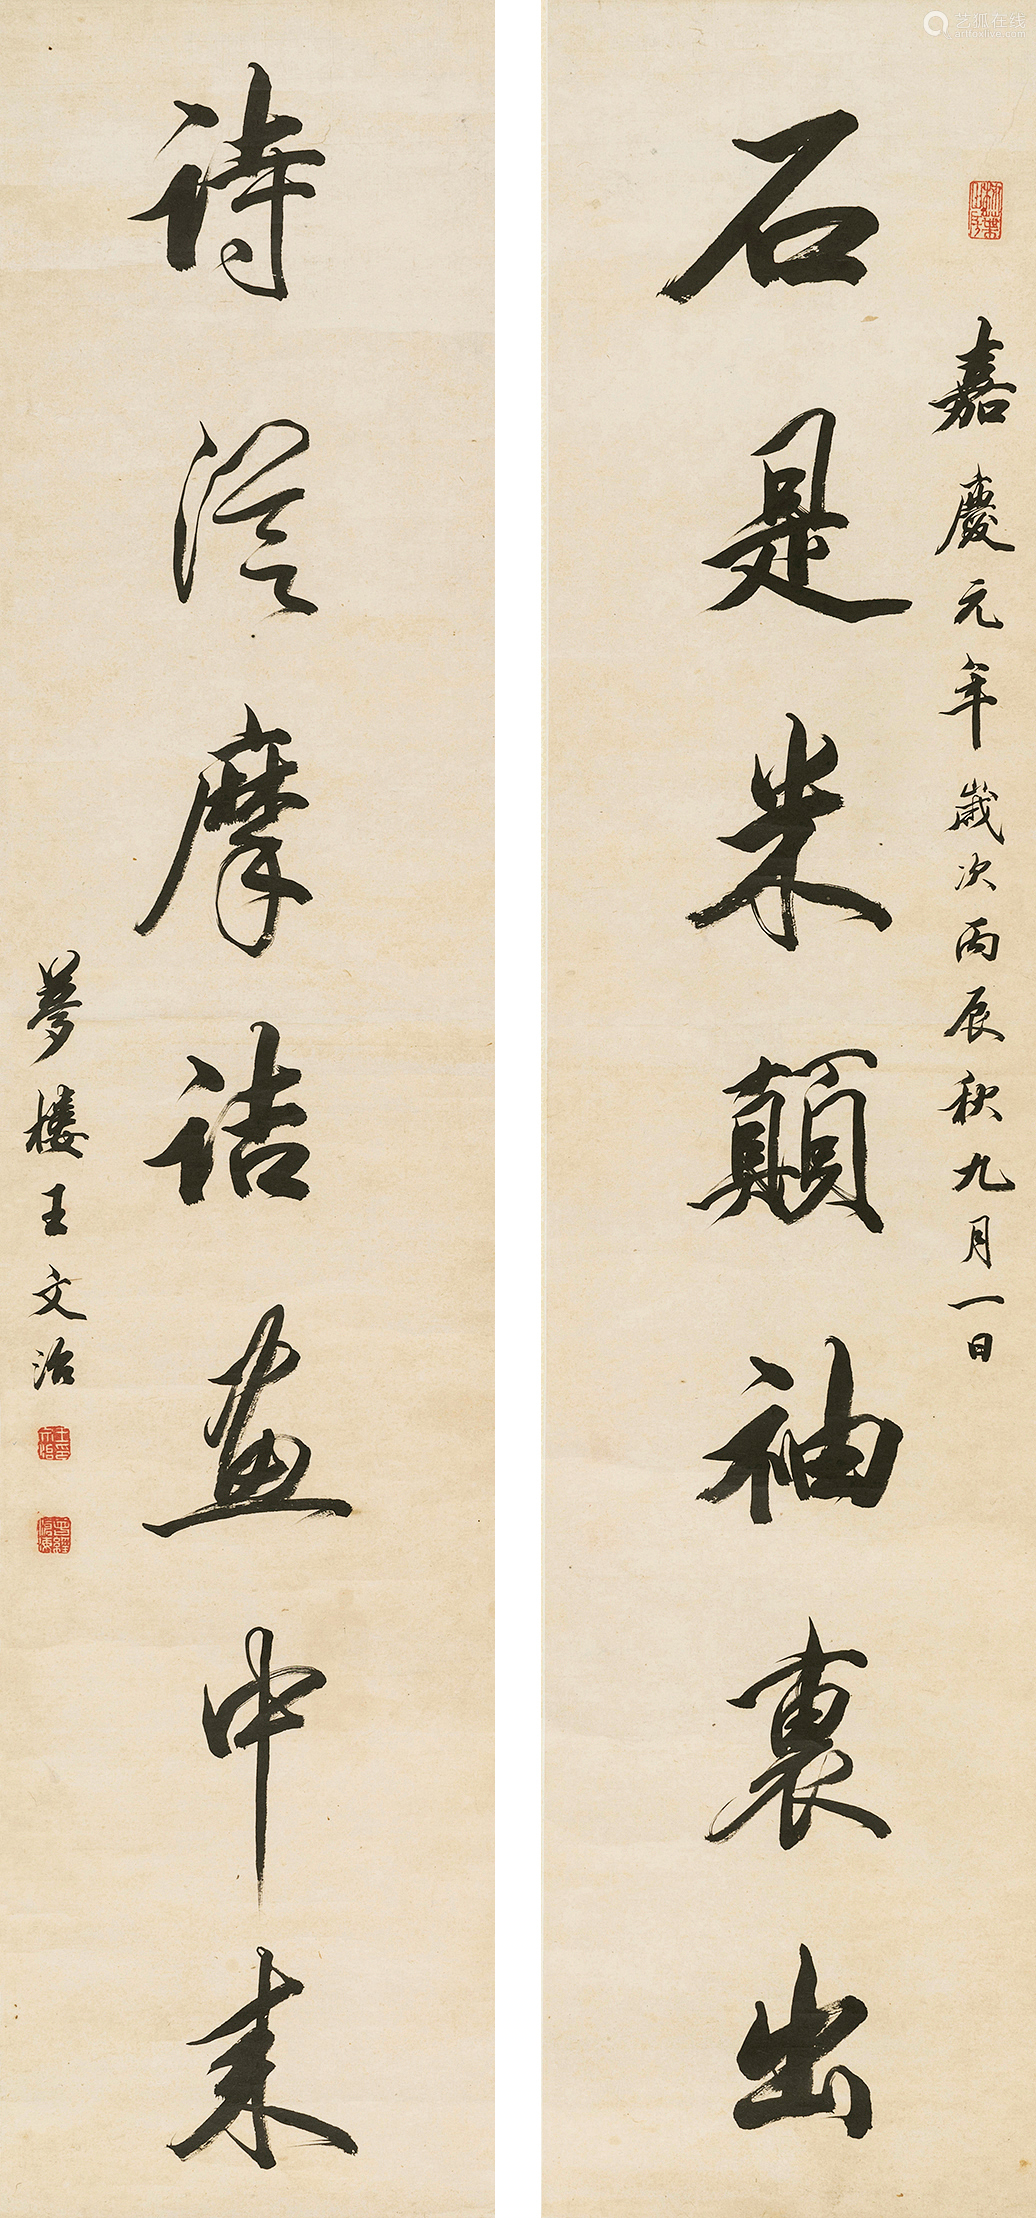 嘉慶元年歲次丙辰秋九月一日
石是米顛袖裏出
詩從摩詰畫中來
夢樓王文治
艺狐在线
artfoxlive.com